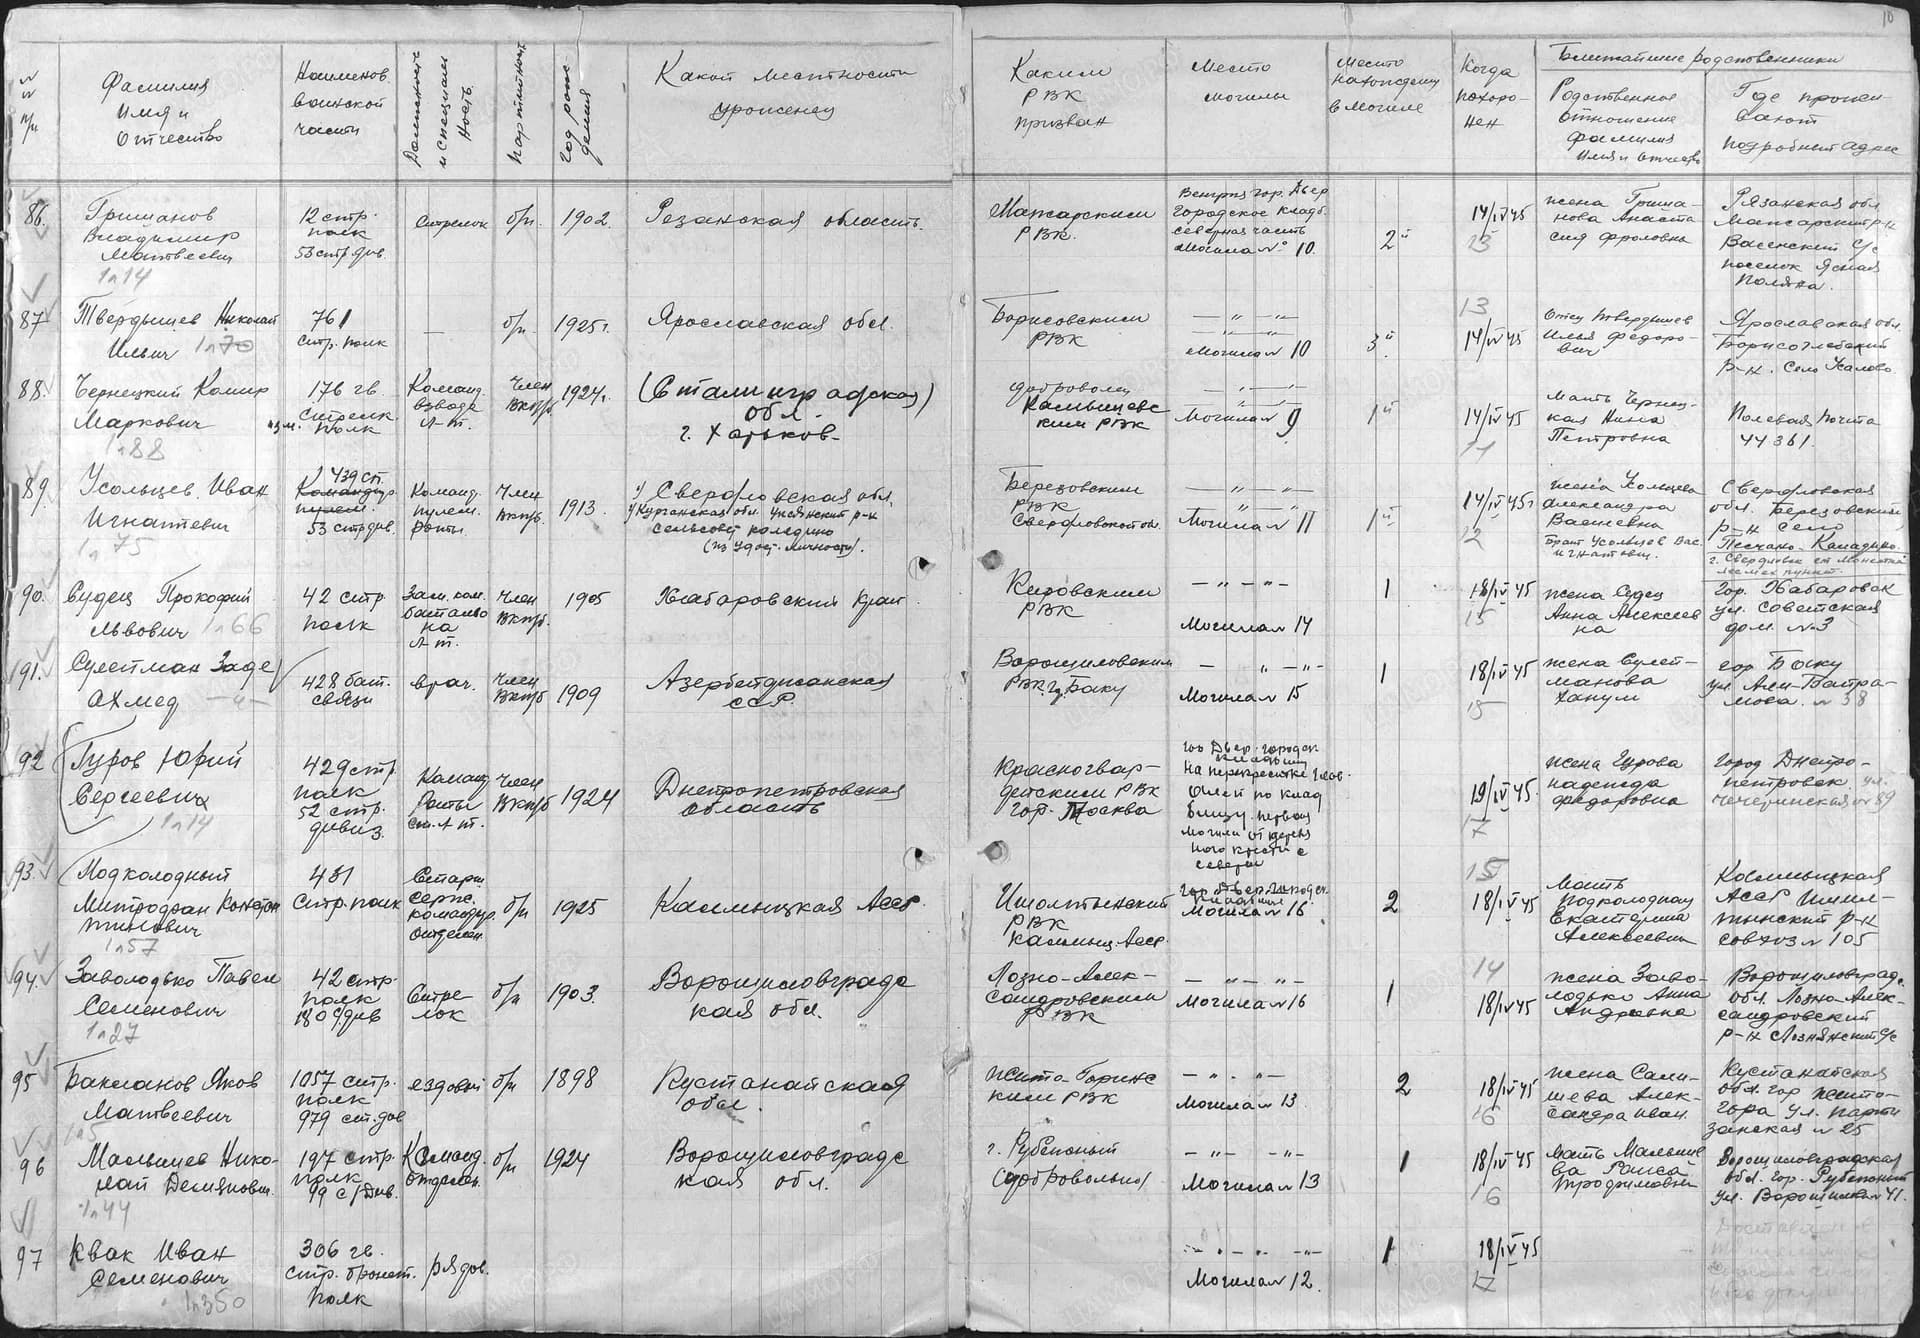 10
№№ п/п
Фамилия Имя и Отчество
Наименов. воинской части
Должность и специальность
партийность
Год рождения
Какой местности уроженец
Каким РВК призван
Место могилы
Место нахождения в могиле
Когда похоронен
Ближайшие родственники
Родственное отношение фамилия Имя и отчество
Где проживают подробный адрес
86.
Гришанов
Владимир
Матвеевич
1л14
12 стр.
полк
53 стр. див.
Стрелок
б/п.
1902
Резанская область.
Мажарским
РВК.
Венгрия гор. Двер
Городское кладб.
северная часть
Могила №. 10.
2й
14/IV 45
13
жена Гриша-
нова Анаста
сия Фроловна
Рязанская обл
Мажарский р-н
с/с
поселок Ясная
Поляна.
87
Твердышев Николай
Ильич 1л70
761
стр. полк
—
б/п.
1925 г.
Ярославская обл.
Борисовским
РВК
— " — " —
Могила № 10
3й
13
14/IV 45
Отец Твердышев
Илья Федоро-
вич
Ярославская обл.
Борисоглебский
р-н. Село
88.
Чернецкий Камир
Маркович
1л88
176 гв.
Стрелк
полк
Команд.
взвода
л-т.
Член
ВКП/б.
1924г.
(Сталинградская)
обл.
г. Харьков.
доброволец
Камышевс
ким РВК
— " —
Могила № 9
1й
14/IV 45
11
Мать Чернец-
кая Нина
Петровна
Полевая почта
44361.
89.
Усольцев Иван
Игнатьевич
1л75
439 сп.
Командир.
пулем.
53 стр див.
Команд.
пулем.
роты
Член
ВКП/б.
1913.
Свердловская обл.
Курганская обл. р-н
сельсовет
(из удост. личности).
Березовским
РВК
Свердловской об.
— " — " —
Могила № 11
1й
14/IV 45г
12
жена Усольцева
Александра
Васильевна
Брат Усольцев Вас.
Игнатьевич.
Свердловская
обл. Березовский
р-н Село
90.
Судец Прокофий
Львович 1л66
42 стр
полк
Зам. ком.
батальо
на
л-т.
Член
ВКП/б.
1905
Хабаровский край
Кировским
РВК
— " — " —
Могила № 14
1
18/IV 45
15
жена Судец
Анна Алексеев
на
Гор. Хабаровск
ул. Советская
дом. № 3
91.
Сулейман Заде
Ахмед
428 бат.
связи
врач.
Член
ВКП/б
1909
Азербейджанская
ССР
Ворошиловским
РВК г. Баку
— " — " —
Могила № 15
1
18/IV 45
15
жена Сулей-
манова
Ханум
гор Баку
ул. Али-Байра-
мова. № 38
92
Гуров Юрий
Сергеевич
1л14
429 стр
полк
52 стр.
дивиз.
Команд
Роты
ст. л-т.
Член
ВКП/б
1924
Днепропетровская
область
Красногвар-
дейским РВК
гор. Москва
гор Двер. городск.
кладбищ
на перекрестке глав.
аллей по клад
близу. первая
могила от
ного креста с
севера
19/IV 45.
17
жена Гурова
Надежда
Федоровна
город Днепро-
петровск ул.
Чечеринская № 89
93.
Подколодный
Митрофан Констан
тинович
1л57
431
Стр. полк
Старш.
серж.
командир.
отделен.
б/п
1925
Калмыцкая Асср.
РВК
Калмыц. Асср.
гор Двер. городск.
кладбище
Могила № 16
2
15
18/IV 45
Мать
Подколодная
Екатерина
Алексеевна
Калмыцкая
АССР
р-н
совхоз № 105
94.
Заволодько Павел
Семенович
1л27
42 стр.
полк
180 с.див
Стре
лок
б/п
1903.
Ворошиловградс
кая обл.
Лозно-Алек-
сандровским
РВК
— " — " —
Могила № 16
1
14
18/IV 45
жена Заво-
лодько Анна
Андревна
Ворошиловград.
обл. Лозно-Алек-
сандровский
р-н Лознянский с/с
95
Бакланов Яков
Матвеевич
1л5
1057 стр.
полк
979 ст.див
ездовой
б/п
1898
Кустанайская
обл.
Жита-Горинс
ким РВК
— " — " —
Могила № 13
2
18/IV 45
16
жена Сали-
шева Алек-
сандра Иван.
Кустанайская
обл. гор Жито-
гора ул. Парти
занская № 25
96
Малышев Нико-
лай Демьянович.
1л44
197 стр.
полк
99 с/див.
Команд.
отделен.
б/п
1924
Ворошиловградс
кая обл.
г. Рубежный
(добровольно)
— " — " —
Могила № 13
1
18/IV 45
16
мать Малыше
ва Раиса
Трофимовна
Ворошиловградская
обл. гор. Рубежный
ул. Ворошилова № 41.
97
Квак Иван
Семенович
1л350
306 гв.
стр.
полк
рядов.
— " — " —
Могила № 12.
1
18/IV 45
17